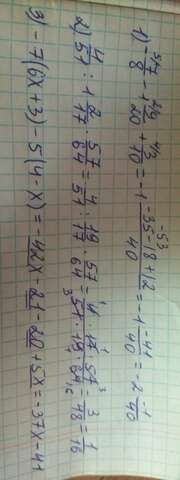 1) - 5\7/8 - 1 2\4/20 + 4\3/10 = -1 (-35-8+12)/40 = -1 -41/40 = -2 -1/40
2) 4/51 : 1 2/17 · 57/64 = 4/51 : 19/17 · 57/64 = 4·17·57/51·19·64 = 3/48 = 1/16
3) -7(6x+3)-5(4-x)=-42x-21-20+5x=37x-41